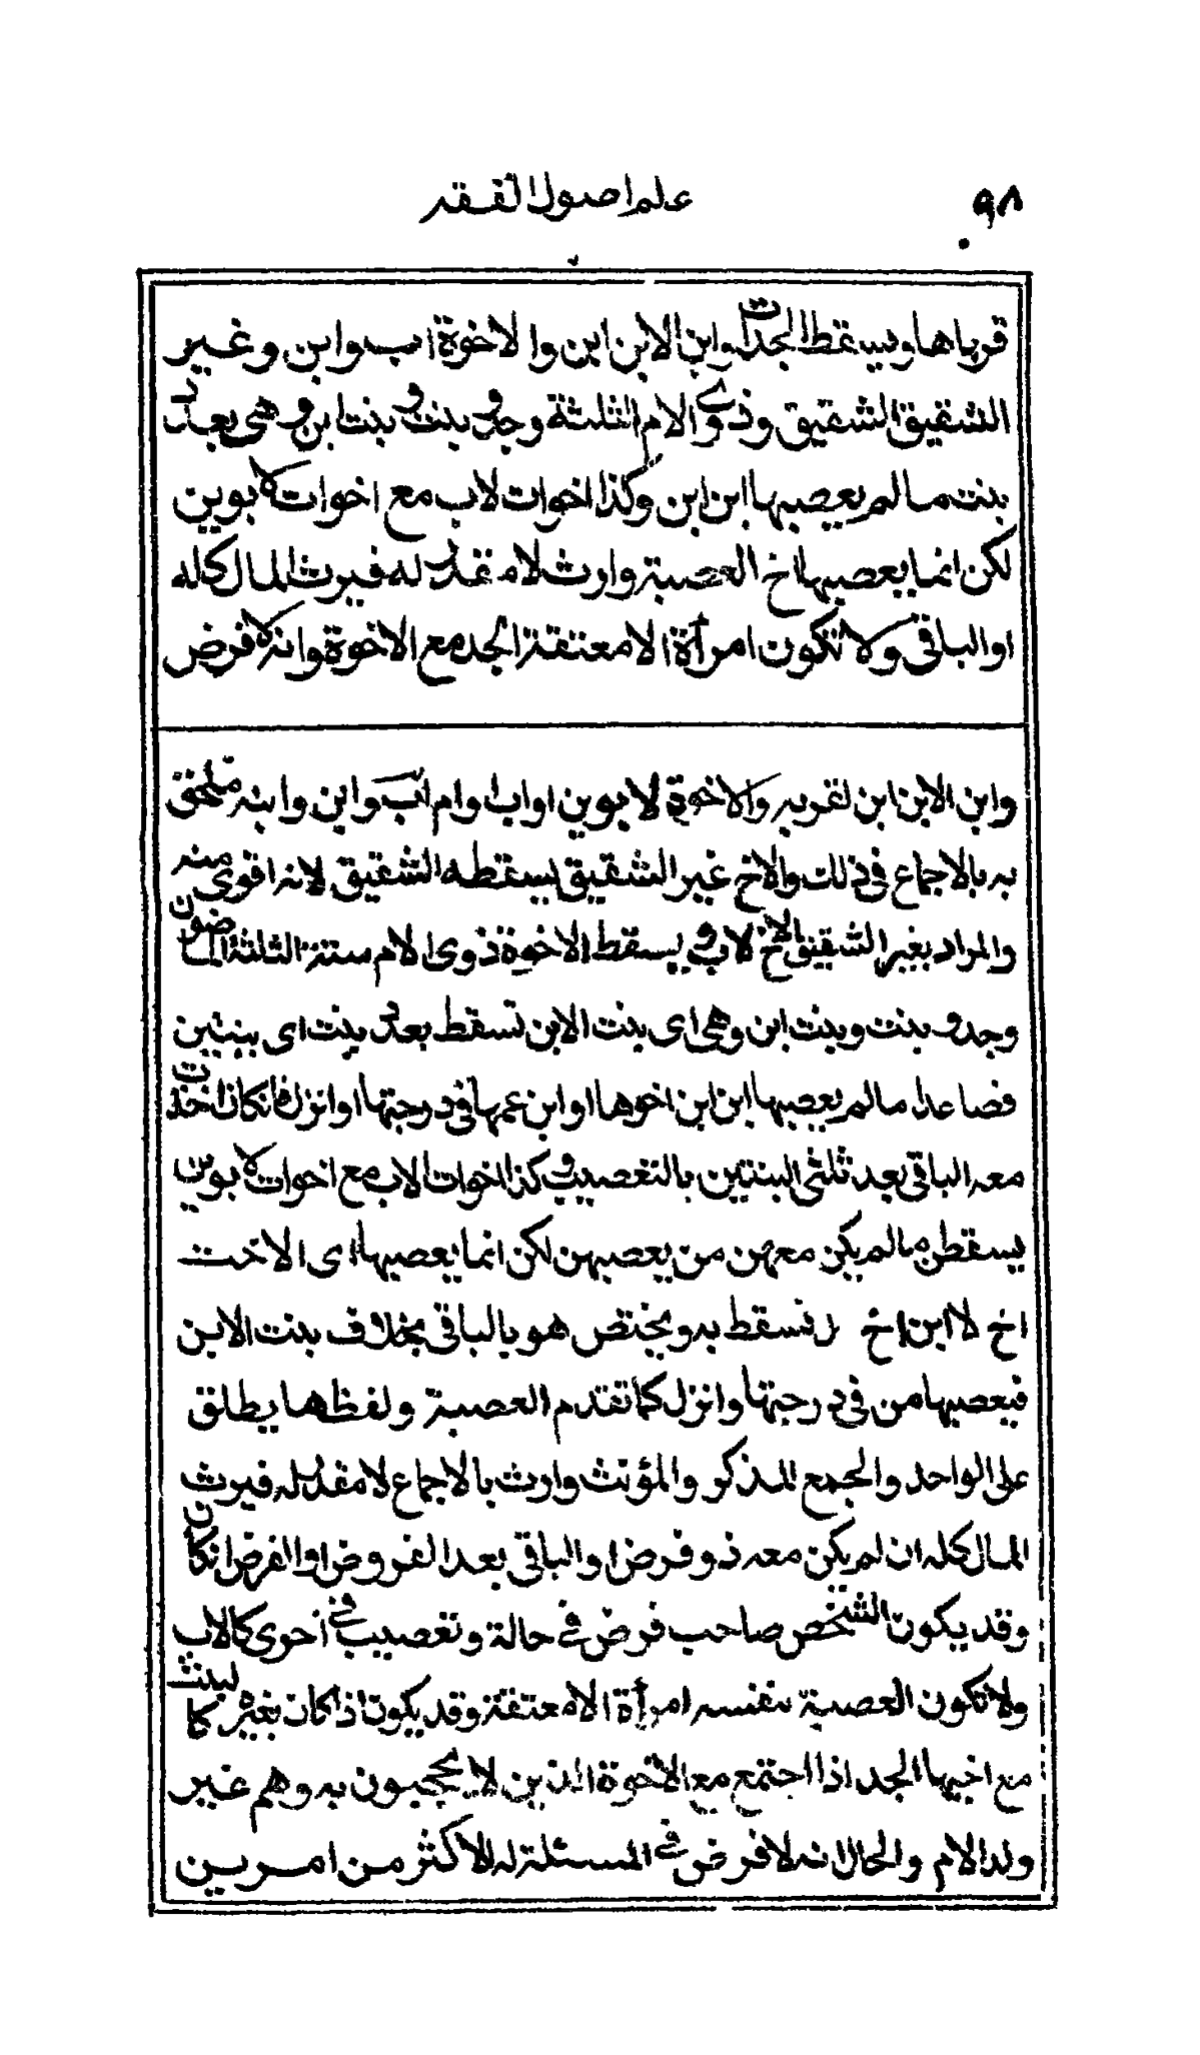 ٩٨
علم اصول الفقه
قرباها ويسقط الجدات وابن الابن ابن والاخوة اب وابن وغير
الشقيق الشقيق وذوى الام الثلثة وجد وبنت وبنت ابن وهى بعد
بنت ما لم يعصبها ابن ابن وكذا اخوات لاب مع اخوات لابوين
لكن انما يعصبها اخ العصبة وارث لا مقدر له فيرث المال كله
او الباقى ولا تكون امرأة الا معتقة الجد مع الاخوة وانه لا فرض
وابن الابن ابن لقربه والاخوة لابوين او اب او ام اب وابن وابنه ملحق
به بالاجماع فى ذلك والاخ غير الشقيق يسقطه الشقيق لانه اقوى منه
والمراد بغير الشقيق الاخ لاب ويسقط الاخوة ذوى الام ستة الثلثة الماضون
وجد وبنت وبنت ابن وهى اى بنت الابن تسقط بعد بنت اى بنتين
فصاعدا ما لم يعصبها ابن ابن اخوها او ابن عمها فى درجتها او انزل فان كان اخذت
معه الباقى بعد ثلثى البنتين بالتعصيب وكذا اخوات الاب مع اخوات لابوين
يسقطن ما لم يكن معهن من يعصبهن لكن انما يعصبها اى الاخت
اخ لا ابن اخ فتسقط به ويختص هو بالباقى بخلاف بنت الابن
فيعصبها من فى درجتها وانزل كما تقدم العصبة ولفظها يطلق
على الواحد والجمع المذكر والمؤنث وارث بالاجماع لا مقدر له فيرث
المال كله ان لم يكن معه ذو فرض او الباقى بعد الفروض او الفرض ان كان
وقد يكون الشخص صاحب فرض فى حالة وتعصيب فى اخرى كالاب
ولا تكون العصبة بنفسه امرأة الا معتقة وقد يكون اذا كان بغيره كالبنت
مع اخيها الجد اذا اجتمع مع الاخوة الذين لا يحجبون به وهم غير
ولد الام والحال انه لا فرض فى المسئلة له الاكثر من امرين